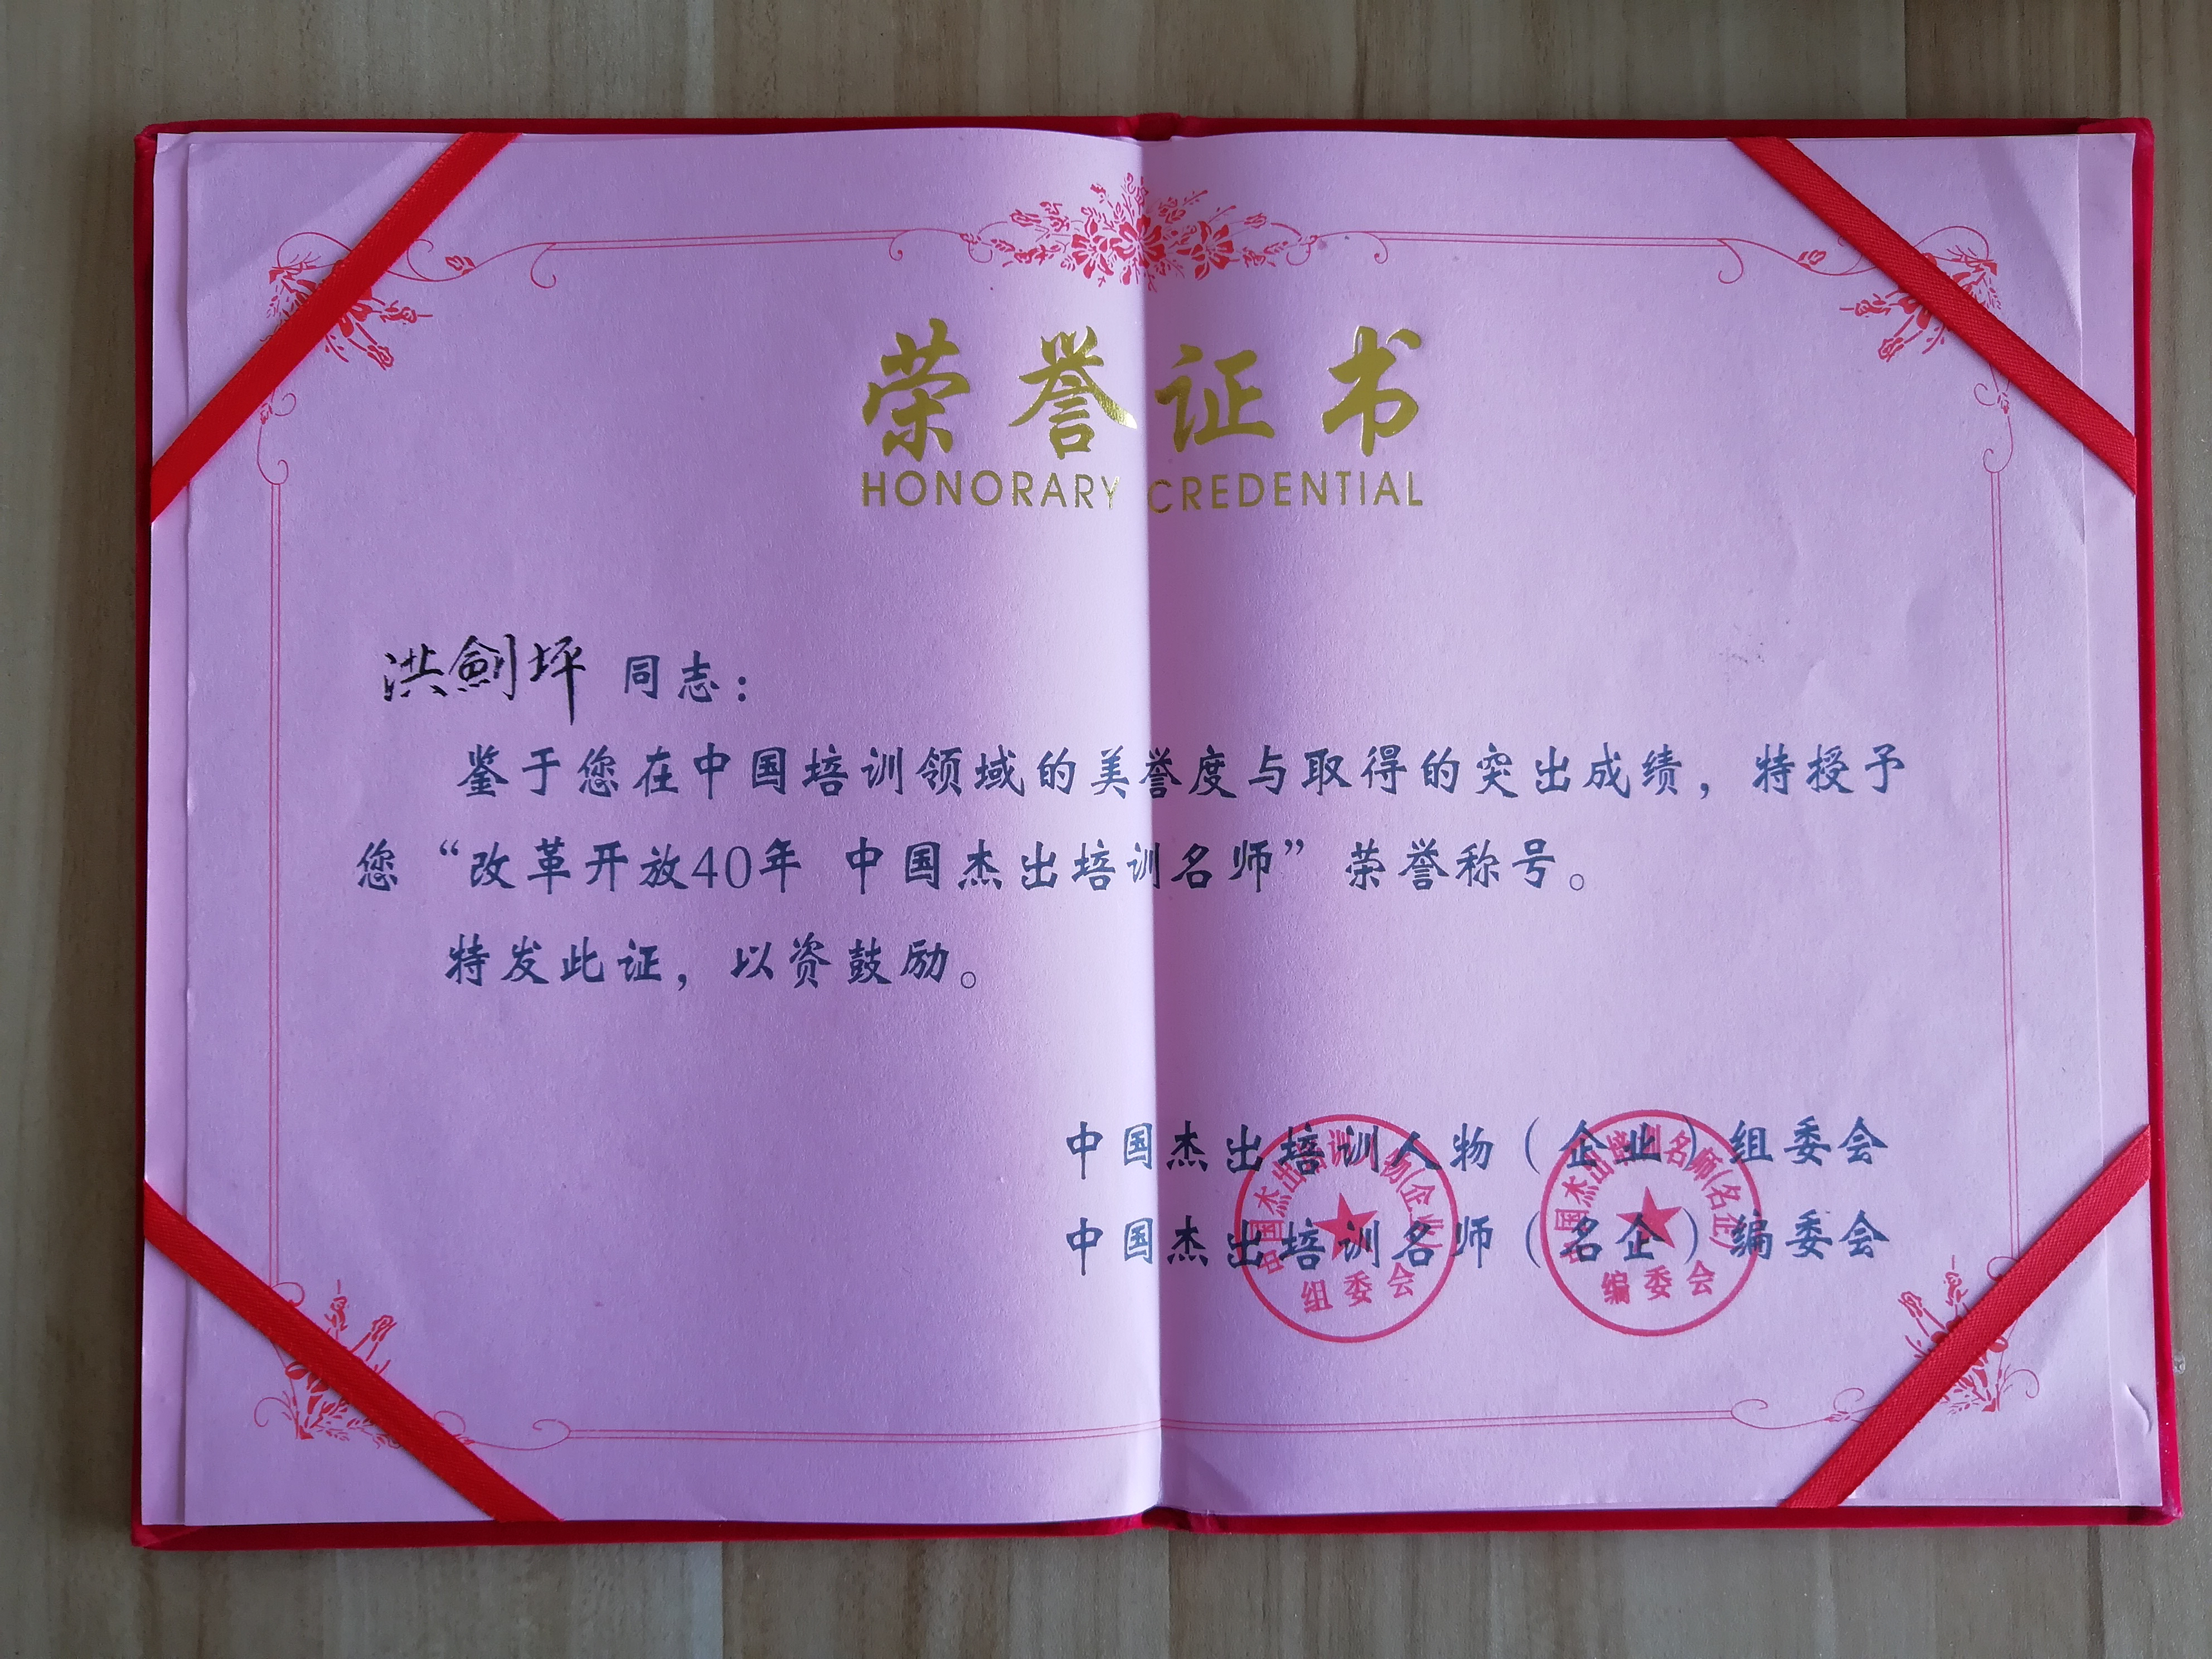 荣誉证书
HONORARY CREDENTIAL
洪劍坪 同志：
鉴于您在中国培训领域的美誉度与取得的突出成绩，特授予
您“改革开放40年 中国杰出培训名师”荣誉称号。
特发此证，以资鼓励。
中国杰出培训人物（企业）组委会
中国杰出培训名师（名企）编委会
中国杰出培训人物(企业)
组委会
中国杰出培训名师(名企)
编委会